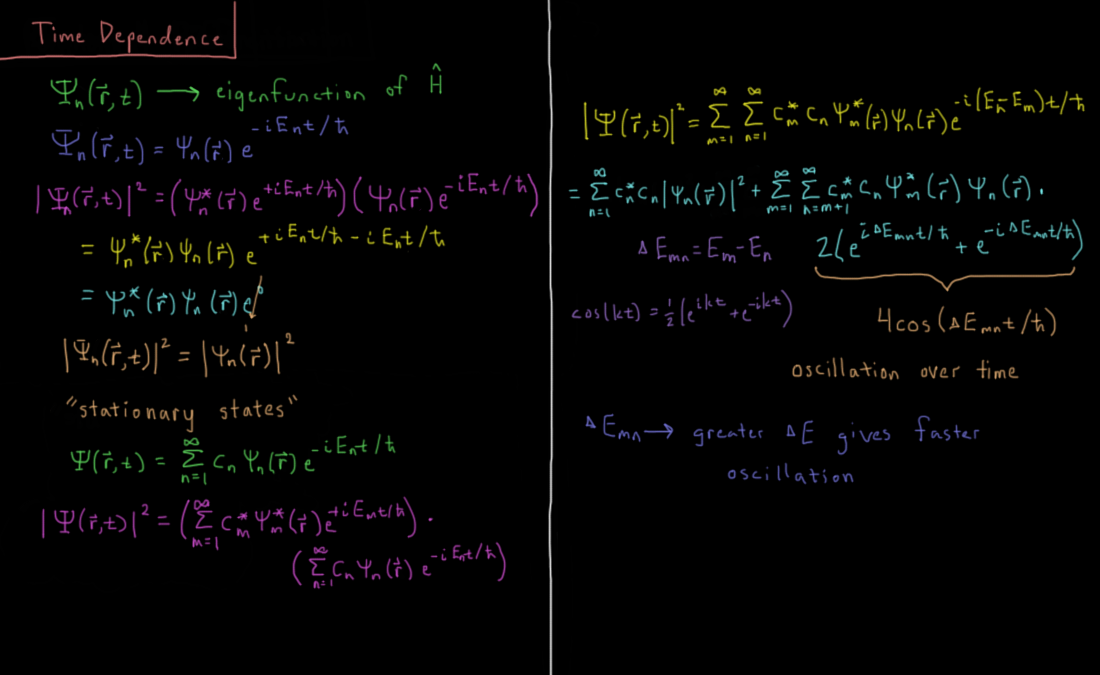 Time Dependence
Ψₙ(r⃗,t) → eigenfunction of Ĥ
Ψₙ(r⃗,t) = ψₙ(r⃗) e^(-iEₙt/ħ)
|Ψₙ(r⃗,t)|² = (ψₙ*(r⃗) e^(+iEₙt/ħ)) (ψₙ(r⃗) e^(-iEₙt/ħ))
= ψₙ*(r⃗) ψₙ(r⃗) e^(+iEₙt/ħ - iEₙt/ħ)
= ψₙ*(r⃗) ψₙ(r⃗) e⁰
1
|Ψₙ(r⃗,t)|² = |ψₙ(r⃗)|²
"stationary states"
Ψ(r⃗,t) = Σ_(n=1)^∞ cₙ ψₙ(r⃗) e^(-iEₙt/ħ)
|Ψ(r⃗,t)|² = (Σ_(m=1)^∞ cₘ* ψₘ*(r⃗) e^(+iEₘt/ħ)) ·
(Σ_(n=1)^∞ cₙ ψₙ(r⃗) e^(-iEₙt/ħ))
|Ψ(r⃗,t)|² = Σ_(m=1)^∞ Σ_(n=1)^∞ cₘ* cₙ ψₘ*(r⃗) ψₙ(r⃗) e^(-i(Eₙ-Eₘ)t/ħ)
= Σ_(n=1)^∞ cₙ* cₙ |ψₙ(r⃗)|² + Σ_(m=1)^∞ Σ_(n=m+1)^∞ cₘ* cₙ ψₘ*(r⃗) ψₙ(r⃗) ·
ΔEₘₙ = Eₘ - Eₙ
2(e^(iΔEₘₙt/ħ) + e^(-iΔEₘₙt/ħ))
cos(kt) = ½(e^(ikt) + e^(-ikt))
4cos(ΔEₘₙt/ħ)
oscillation over time
ΔEₘₙ → greater ΔE gives faster
oscillation